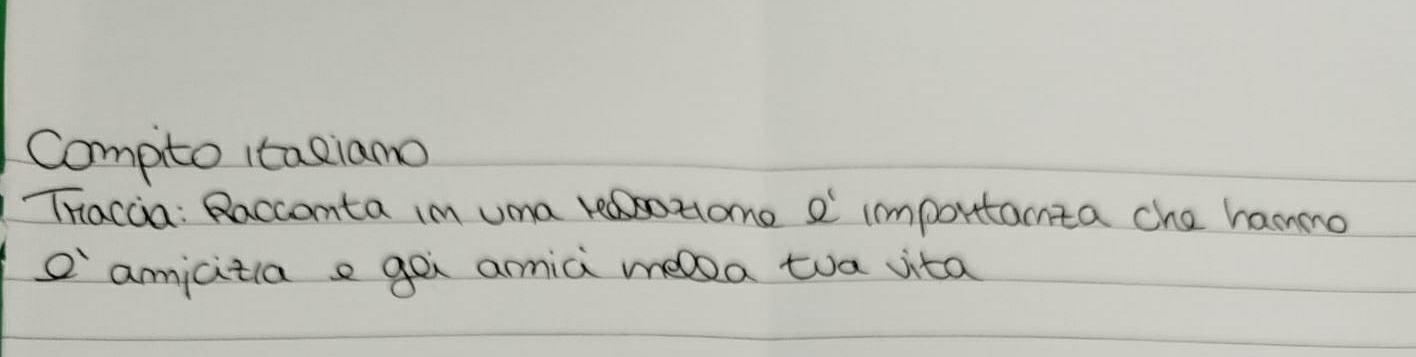 Compito italiano
Traccia: Racconta in una relazione l'importanza che hanno
l'amicizia e gli amici nella tua vita